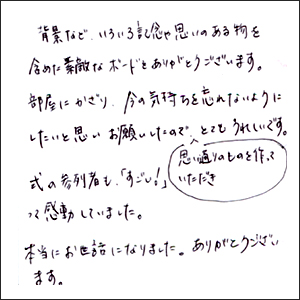 背景など、いろいろ記念や思いのある物を
含めた素敵なボードをありがとうございます。
部屋にかざり、今の気持ちを忘れないように
したいと思いお願いしたので、とてもうれしいです。
思い通りのものを作って
いただき
式の参列者も、「すごい!」
って感動していました。
本当にお世話になりました。ありがとうござい
ます。